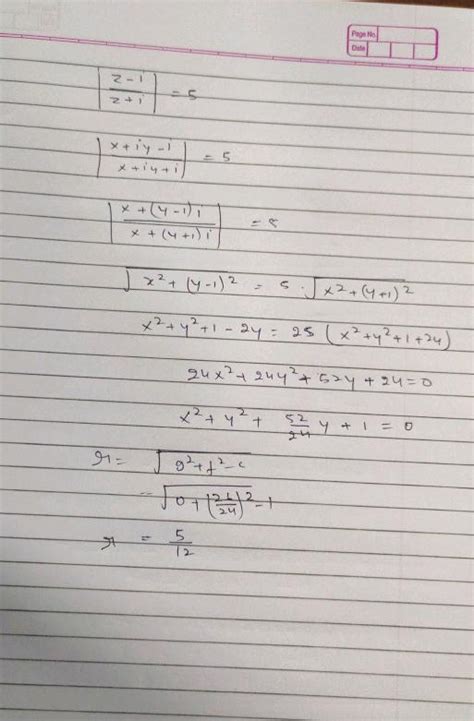 Page No.
Date
|z-i / z+i| = 5
|x+iy-i / x+iy+i| = 5
|x+(y-1)i / x+(y+1)i| = 5
√x²+(y-1)² = 5 · √x²+(y+1)²
x²+y²+1-2y = 25 (x²+y²+1+2y)
24x²+24y²+52y+24=0
x²+y²+ 52/24 y+1=0
r= √g²+f²-c
= √0+(26/24)²-1
r = 5/12